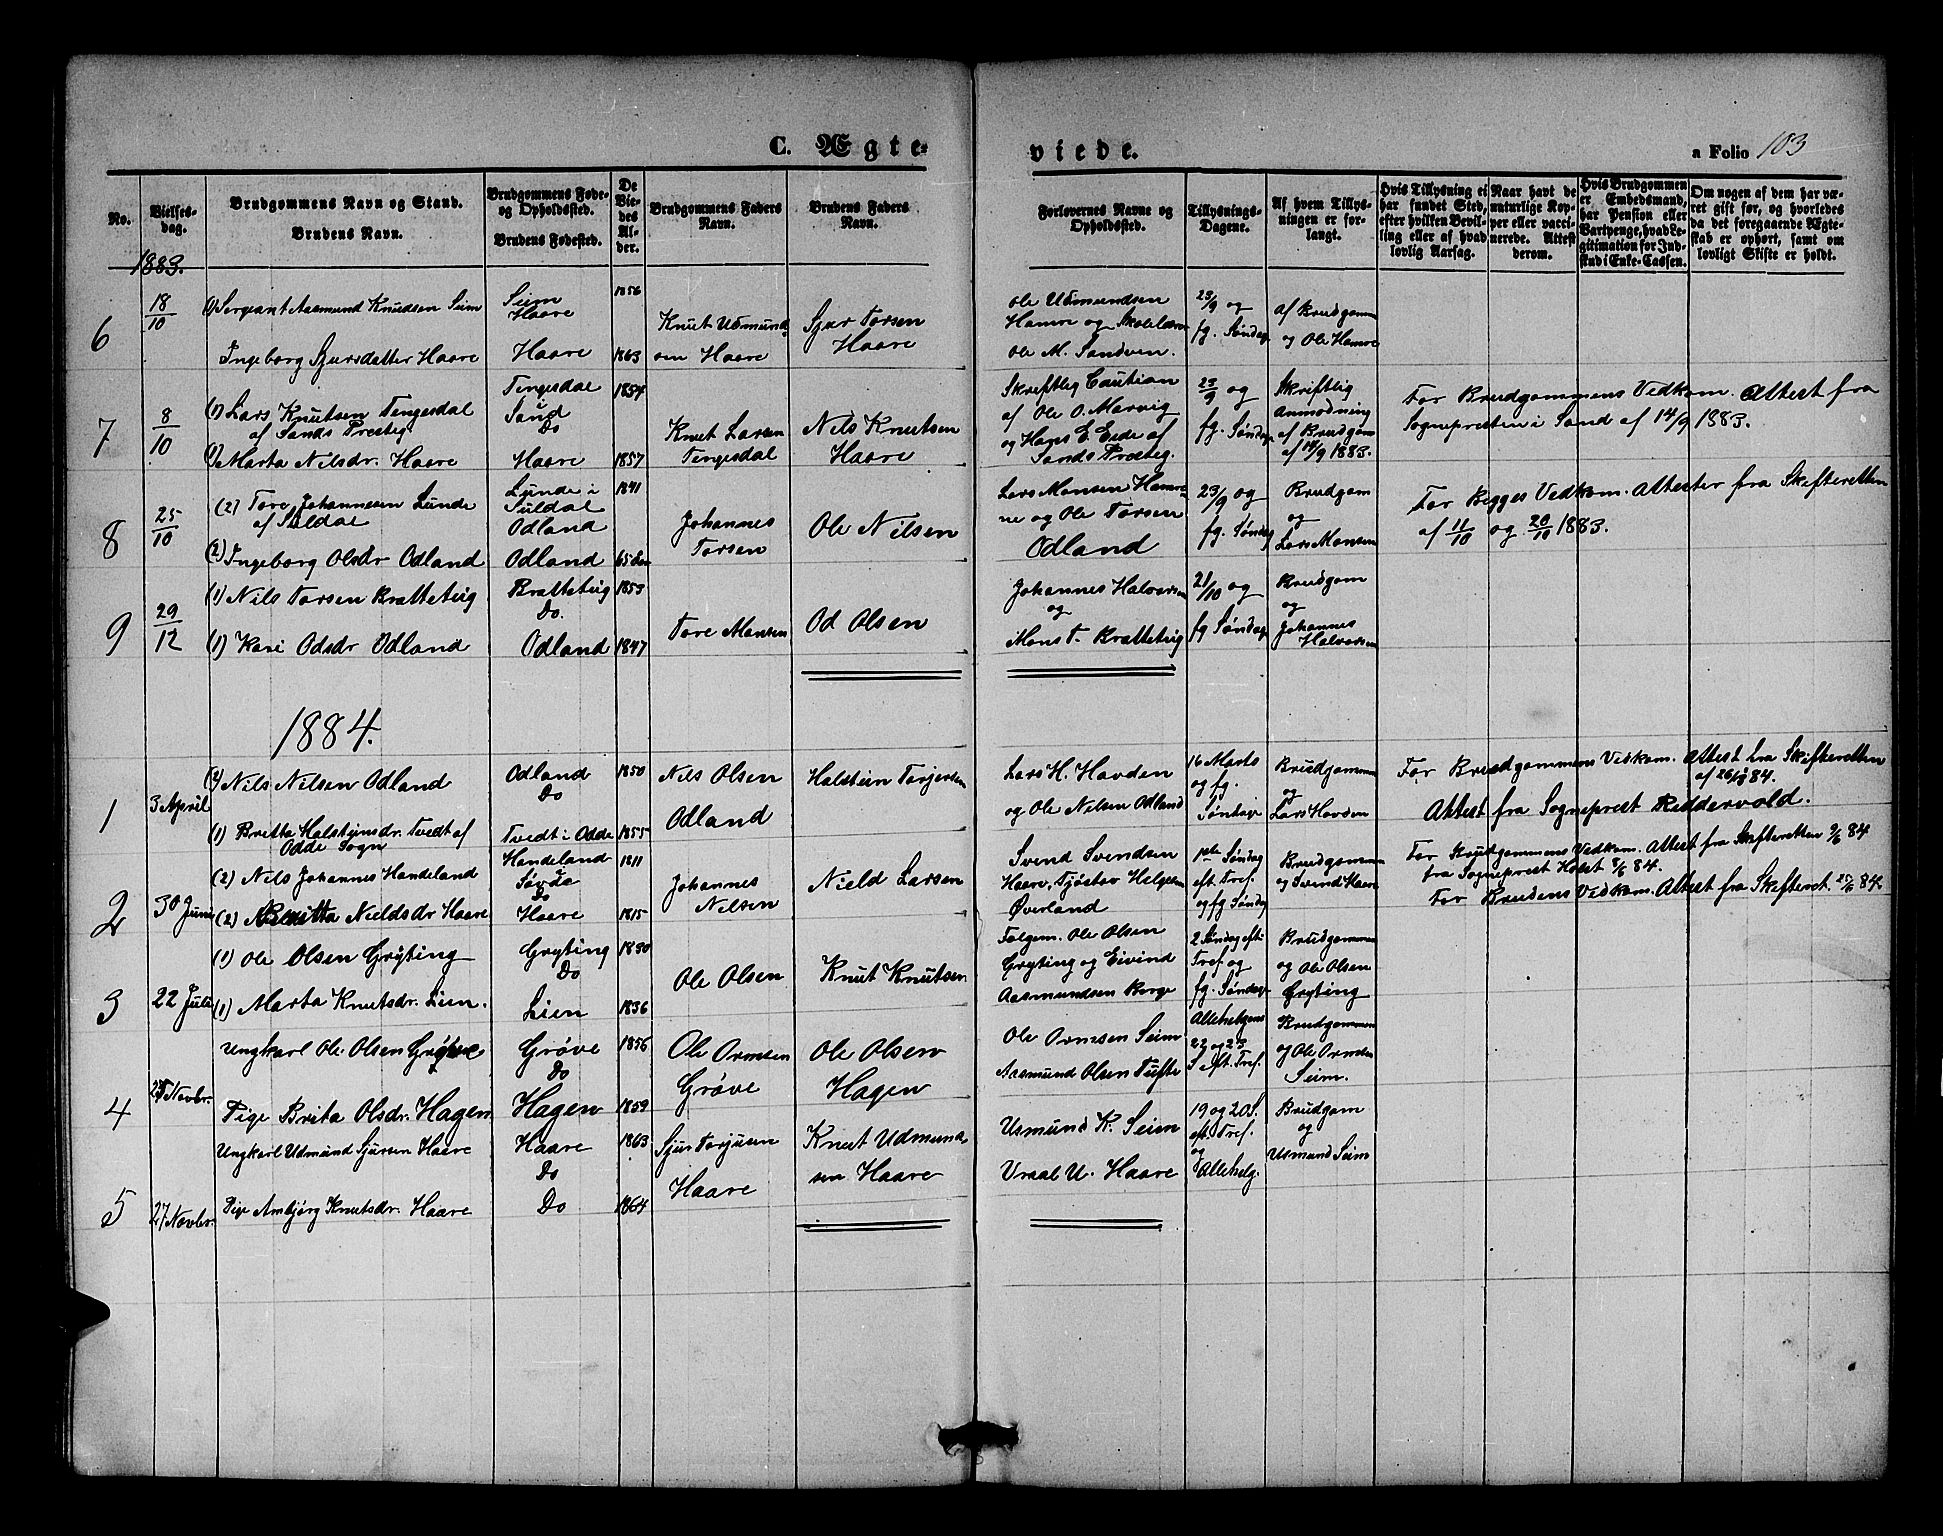 C. Ægte-
viede.
a Folio 103
No.
Vielses-
dag.
Brudgommens Navn og Stand.
Brudens Navn.
Brudgommens Føde-
og Opholdssted.
Brudens Fødested.
De
Vie-
des
Al-
der.
Brudgommens Faders
Navn.
Brudens Faders
Navn.
Forlovernes Navne og
Opholdssted.
Tillysnings-
Dagene.
Af hvem Tillys-
ningen er for-
langt.
Hvis Tillysning ei
har fundet Sted,
efter hvilken Bevil-
ling eller af hvad
lovlig Aarsag.
Naar havt de
naturlige Kop-
per eller vacci-
nerede. Attest
derom.
Hvis Brudgommen
er Embedsmand,
har Pension eller
Vartpenge, hvad Le-
gitimation for Ind-
skud i Enke-Cassen.
Om nogen af dem har væ-
ret gift før, og hvorledes
da det foregaaende Ægte-
skab er ophørt, samt om
lovligt Skifte er holdt.
1883.
6
18/10
1) Sergeant Aasmund Knudsen Seim
Ingeborg Sjursdatter Haare
Seim
Haare
Haare
1856
1863
Knut Udmunds
on Haare
Sjur Torsen
Haare
Ole Udmundsen
Hamre og Skolelærer
Ole M. Sandven.
23/9 og
fg. Søndag
af Brudgom
og Ole Hamre
7
8/10
(1) Lars Knutsen Tengesdal
af Sands Prœsteg
1) Marta Nilsdr. Haare
Tengesdal
i
Sand
Do
Haare
1854
1857
Knut Larsen
Tengesdal
Nils Knutsen
Haare
Skreftleg Caution
af Ole O. Marvig
og Hans E. Eide af
Sands Prœsteg.
23/9 og
fg. Søndag
Skriftlig
Anmodning
af Brudgom
af 14/9 1883.
For Brudgommens Vedkom. Attest fra
Sognepresten i Sand af 14/9 1883.
8
25/10
(2) Tore Johannesen Lunde
af Suldal
(2) Ingeborg Olsdr Odland
Lunde i
Suldal
Odland
Odland
1841
Johannes
Torsen
Ole Nilsen
Lars Monsen Hamre
ne og Ole Torsen
Odland
23/9 og
fg. Søndag
Brudgom
og
Lars Monsen
For Begges Vedkom. Attester fra Skifteretten
af 11/10 og 20/10 1883.
9
29/12
(1) Nils Torsen Bratteteig
(1) Kari Odsdr Odland
Bratteteig
Do.
Odland
1853
1847
Tore Monsen
Od Olsen
Johannes Halvorsen
og
Mons T. Bratteteig
21/10 og
fg Søndag
Brudgom
og
Johannes
Halvorsen
1884.
1
3 April
(2) Nils Nilsen Odland
(1) Britta Halstensdr. Tvedt af
Odde Sogn
Odland
Do
Tvedt i Odde
1850
1855
Nils Olsen
Odland
Halstein Torjersen
Lars H. Hovden
og Ole Nilsen Odland
16 Marts
og fg.
Søndage
Brudgommen
og
Lars Hovden
For Brudgommens Vedkom. Attest fra Skifteretten
84.
Attest fra Sogneprest Riddervold.
2
30 Juni
(2) Nils Johannes Handeland
(2) Britta Nieldsdr Haare
Handeland
Søvde
Do
Haare
1811
1815
Johannes
Nilsen
Nield Larsen
Svend Svendsen
Haare, Tjøstov Helgesen
Øverland
1ste Søndag
eft. Tref.
og fg Søndag
Brudgommen
og Svend Haare
For Brudgommens Vedkom. Attest fra Skifteretten 9/6 84
fra Sogneprest Holst 8/6 84.
For Brudens Vedkom. Attest fra Skifteret. 25/6 84
3
22 Juli
(1) Ole Olsen Gryting
(1) Marta Knutsdr. Lien.
Gryting
Do
Lien
1830
1836
Ole Olsen
Knut Knutsen
Følgem. Ole Olsen
Gryting og Eivind
Aasmundsen Berge
2 Søndag eft.
Tref. og
fg. Søndage
Brudgommen
og Ole Olsen
Gryting
4
Novbr.
Ungkarl Ole Olsen Grøve
Pige Brita Olsdr. Hagen
Grøve
Do
Hagen
1856
1859
Ole Ormsen
Grøve
Ole Olsen
Hagen
Ole Ormsen Seim
Aasmund Olsen Tufte
Allehelgens
22 og 23
S eft. Tref.
Brudgommen
og Ole Ormsen
Seim.
5
27 Novbr.
Ungkarl Udmund Sjursen Haare
Pige Ambjørg Knutsdr. Haare
Haare
Do
Do
1863
1864
Sjur Torjusen
Haare
Knut Udmund
sen Haare
Usmund K. Seim
Vraal U. Haare
19 og 20 S.
eft. Tref.
og
Allehelg.
Brudgom
og
Usmund Seim